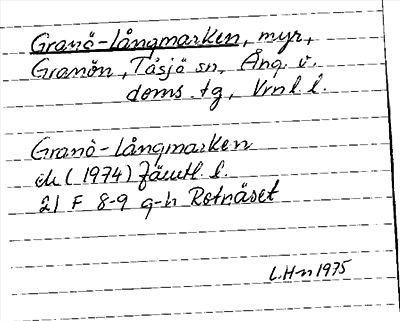 Granö-Långmarken, myr,
Granön, Tåsjö sn, Ång. v.
doms.tg, Vrnl l.
Granö-Långmarken
ek (1974) Jämtl. l.
21 F 8-9 g-h Rotnäset
L.H-n 1975